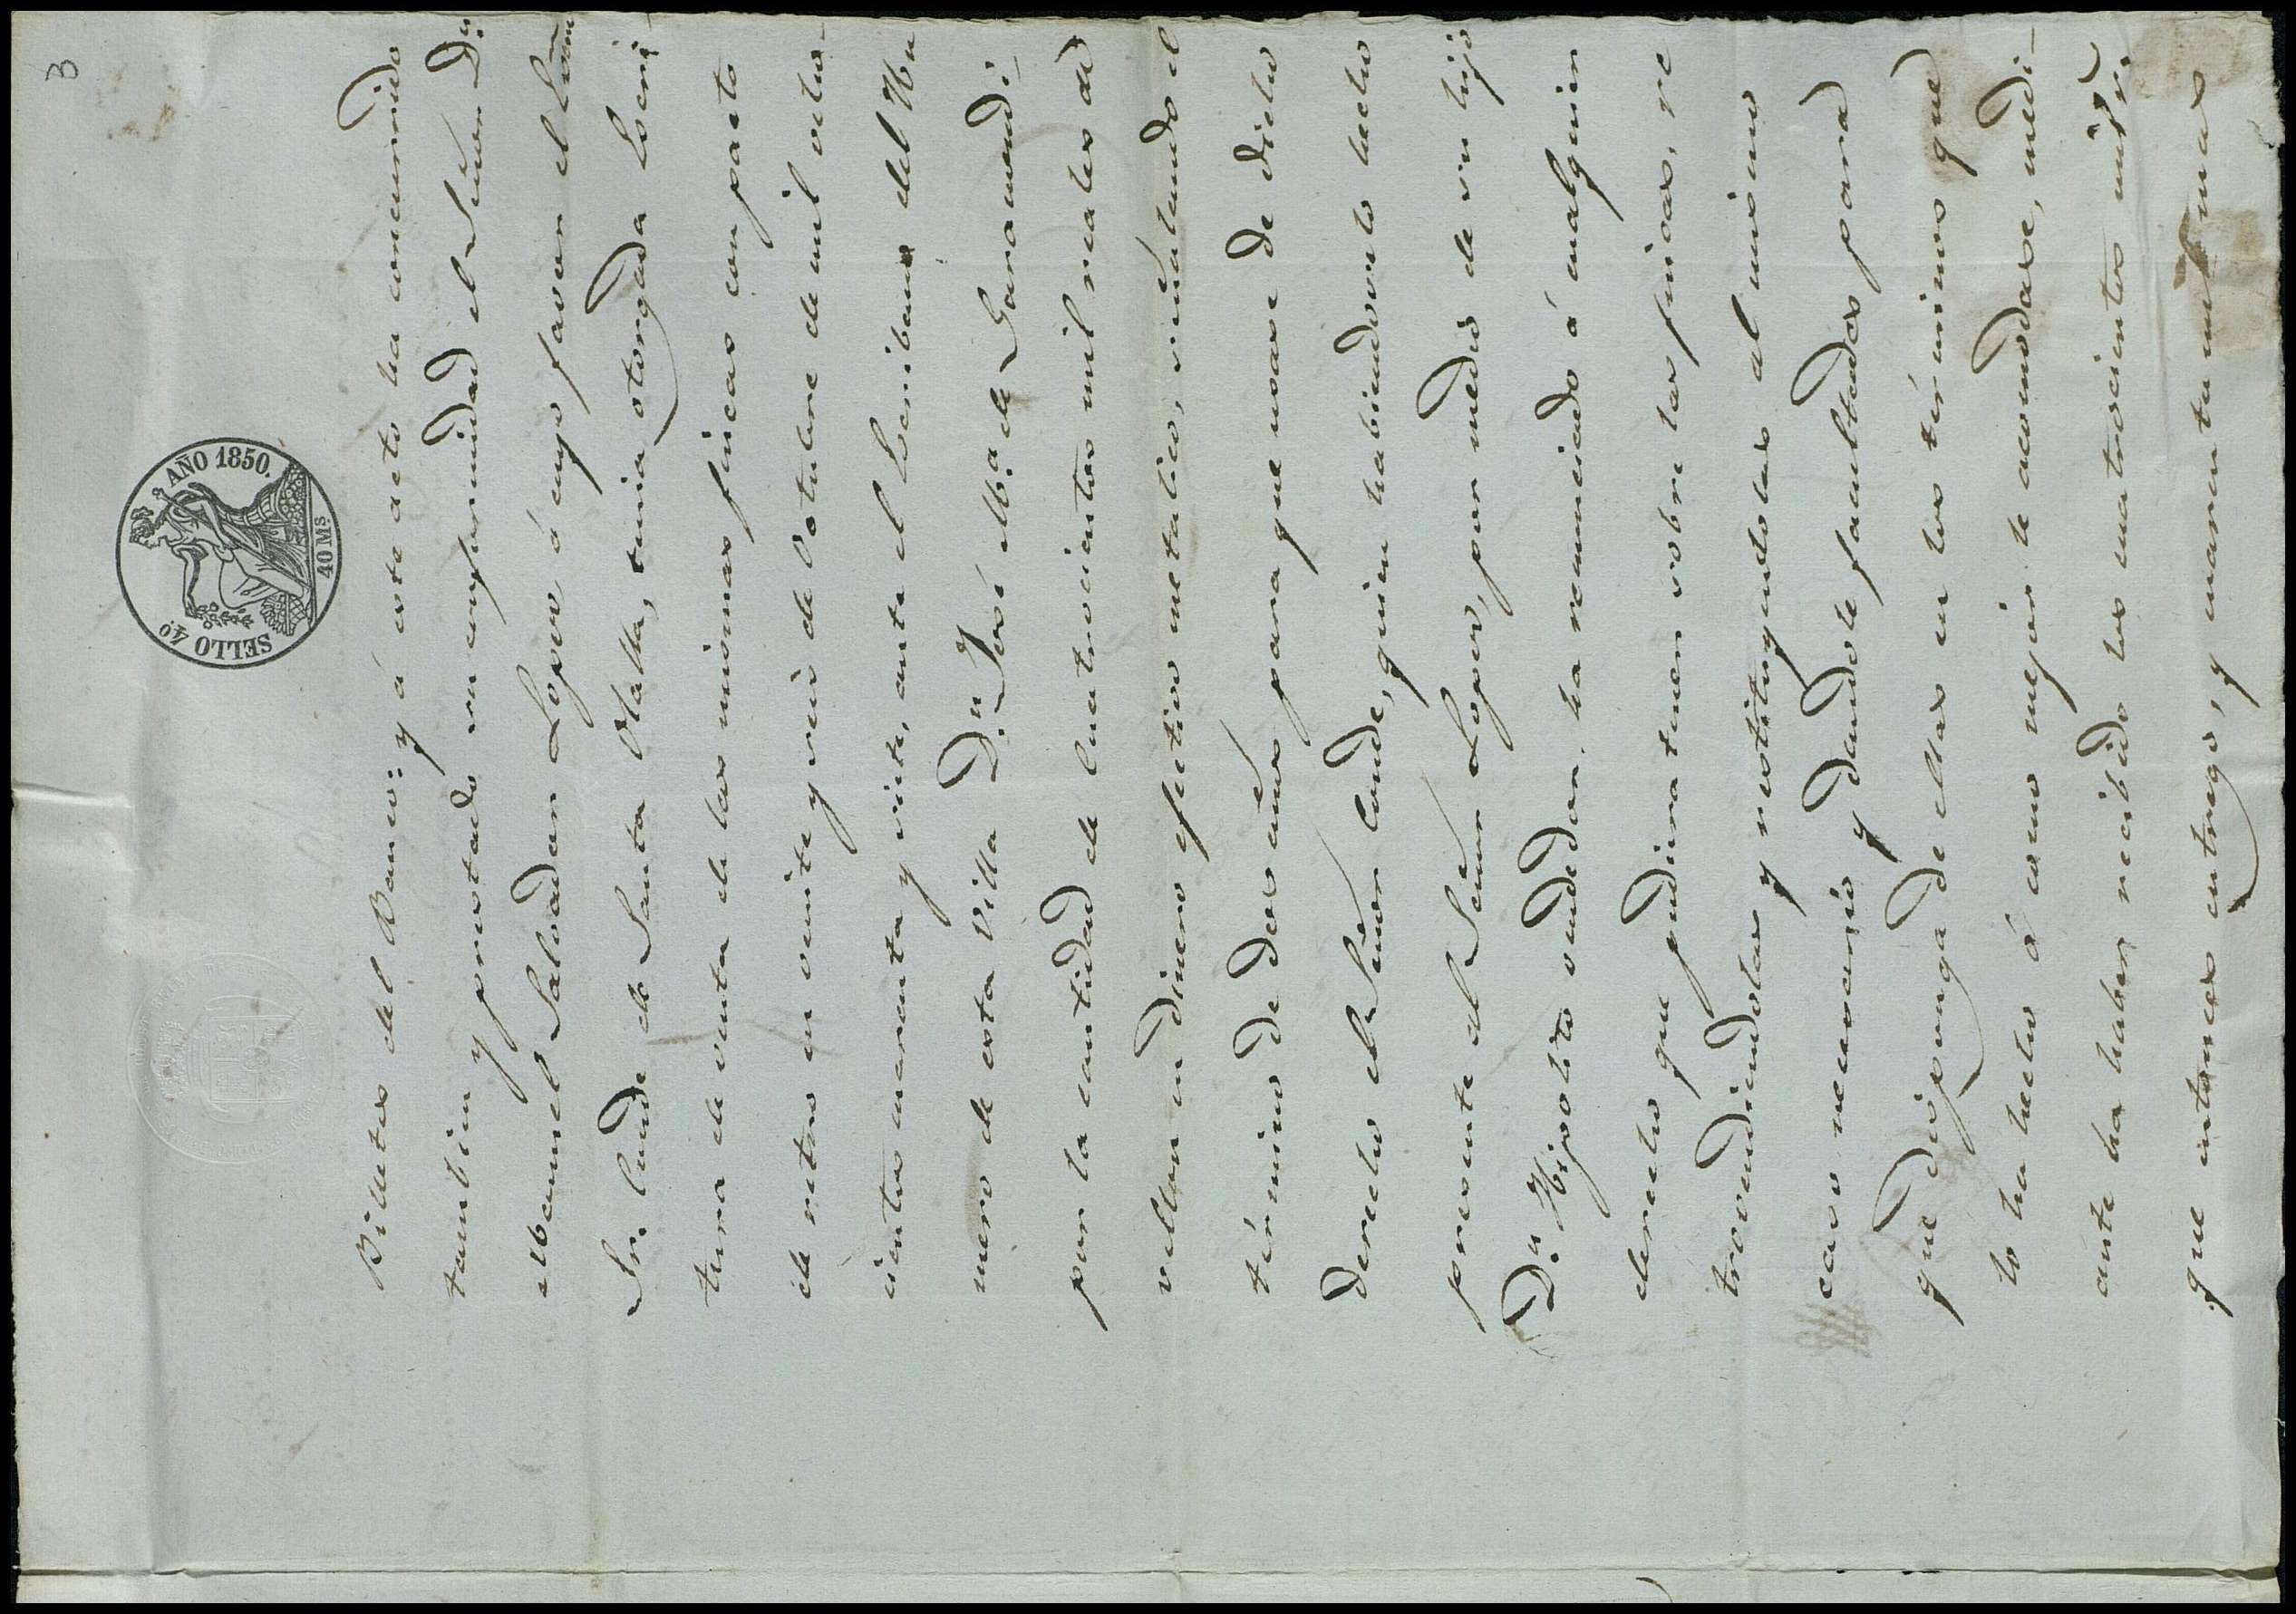 3
SELLO 4º. AÑO 1850.
40 Ms.
Billetes del Banco: y á este acto ha concurrido
tambien y prestado su conformidad el Señor Dn.
Manuel Salvador Lopez, á cuyo favor el Exmo
Sr. Conde de Santa Olalla, tenia otorgada Escri-
tura de venta de las mismas fincas con pacto
de retro en veinte y seis de Octubre de mil ocho-
cientos cuarenta y siete, ante el Escribano del Nu
mero de esta Villa Dn. José Ma. de Garamendi:
por la cantidad de Cuatrocientos mil reales de
vellon en dinero efectivo metalico, señalando el
término de dos años para que usase de dicho
derecho el Señor Conde, quien habiendolo hecho
presente al Señor Lopez, por medio de su hijo
Dn. Hipolito vendedor, ha renunciado á cualquier
derecho que pudiera tener sobre las fincas, re
trovendiendolas y restituyendolas al mismo
caso necesario y dandole facultades para
que disponga de ellas en los términos que
lo ha hecho ó como mejor le acomodase, medi-
ante ha haber recibido los cuatrocientos mil rs.
que entonces entregó, y cuarenta mil mas